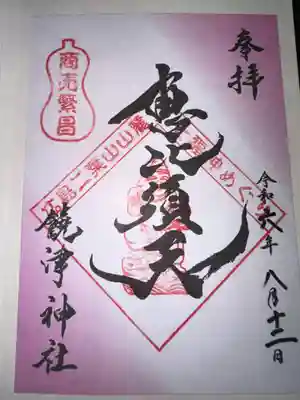 奉拝
商売繁昌
二葉山山麓
福神めぐ
惠比須天
令和六年八月十二日
饒津神社